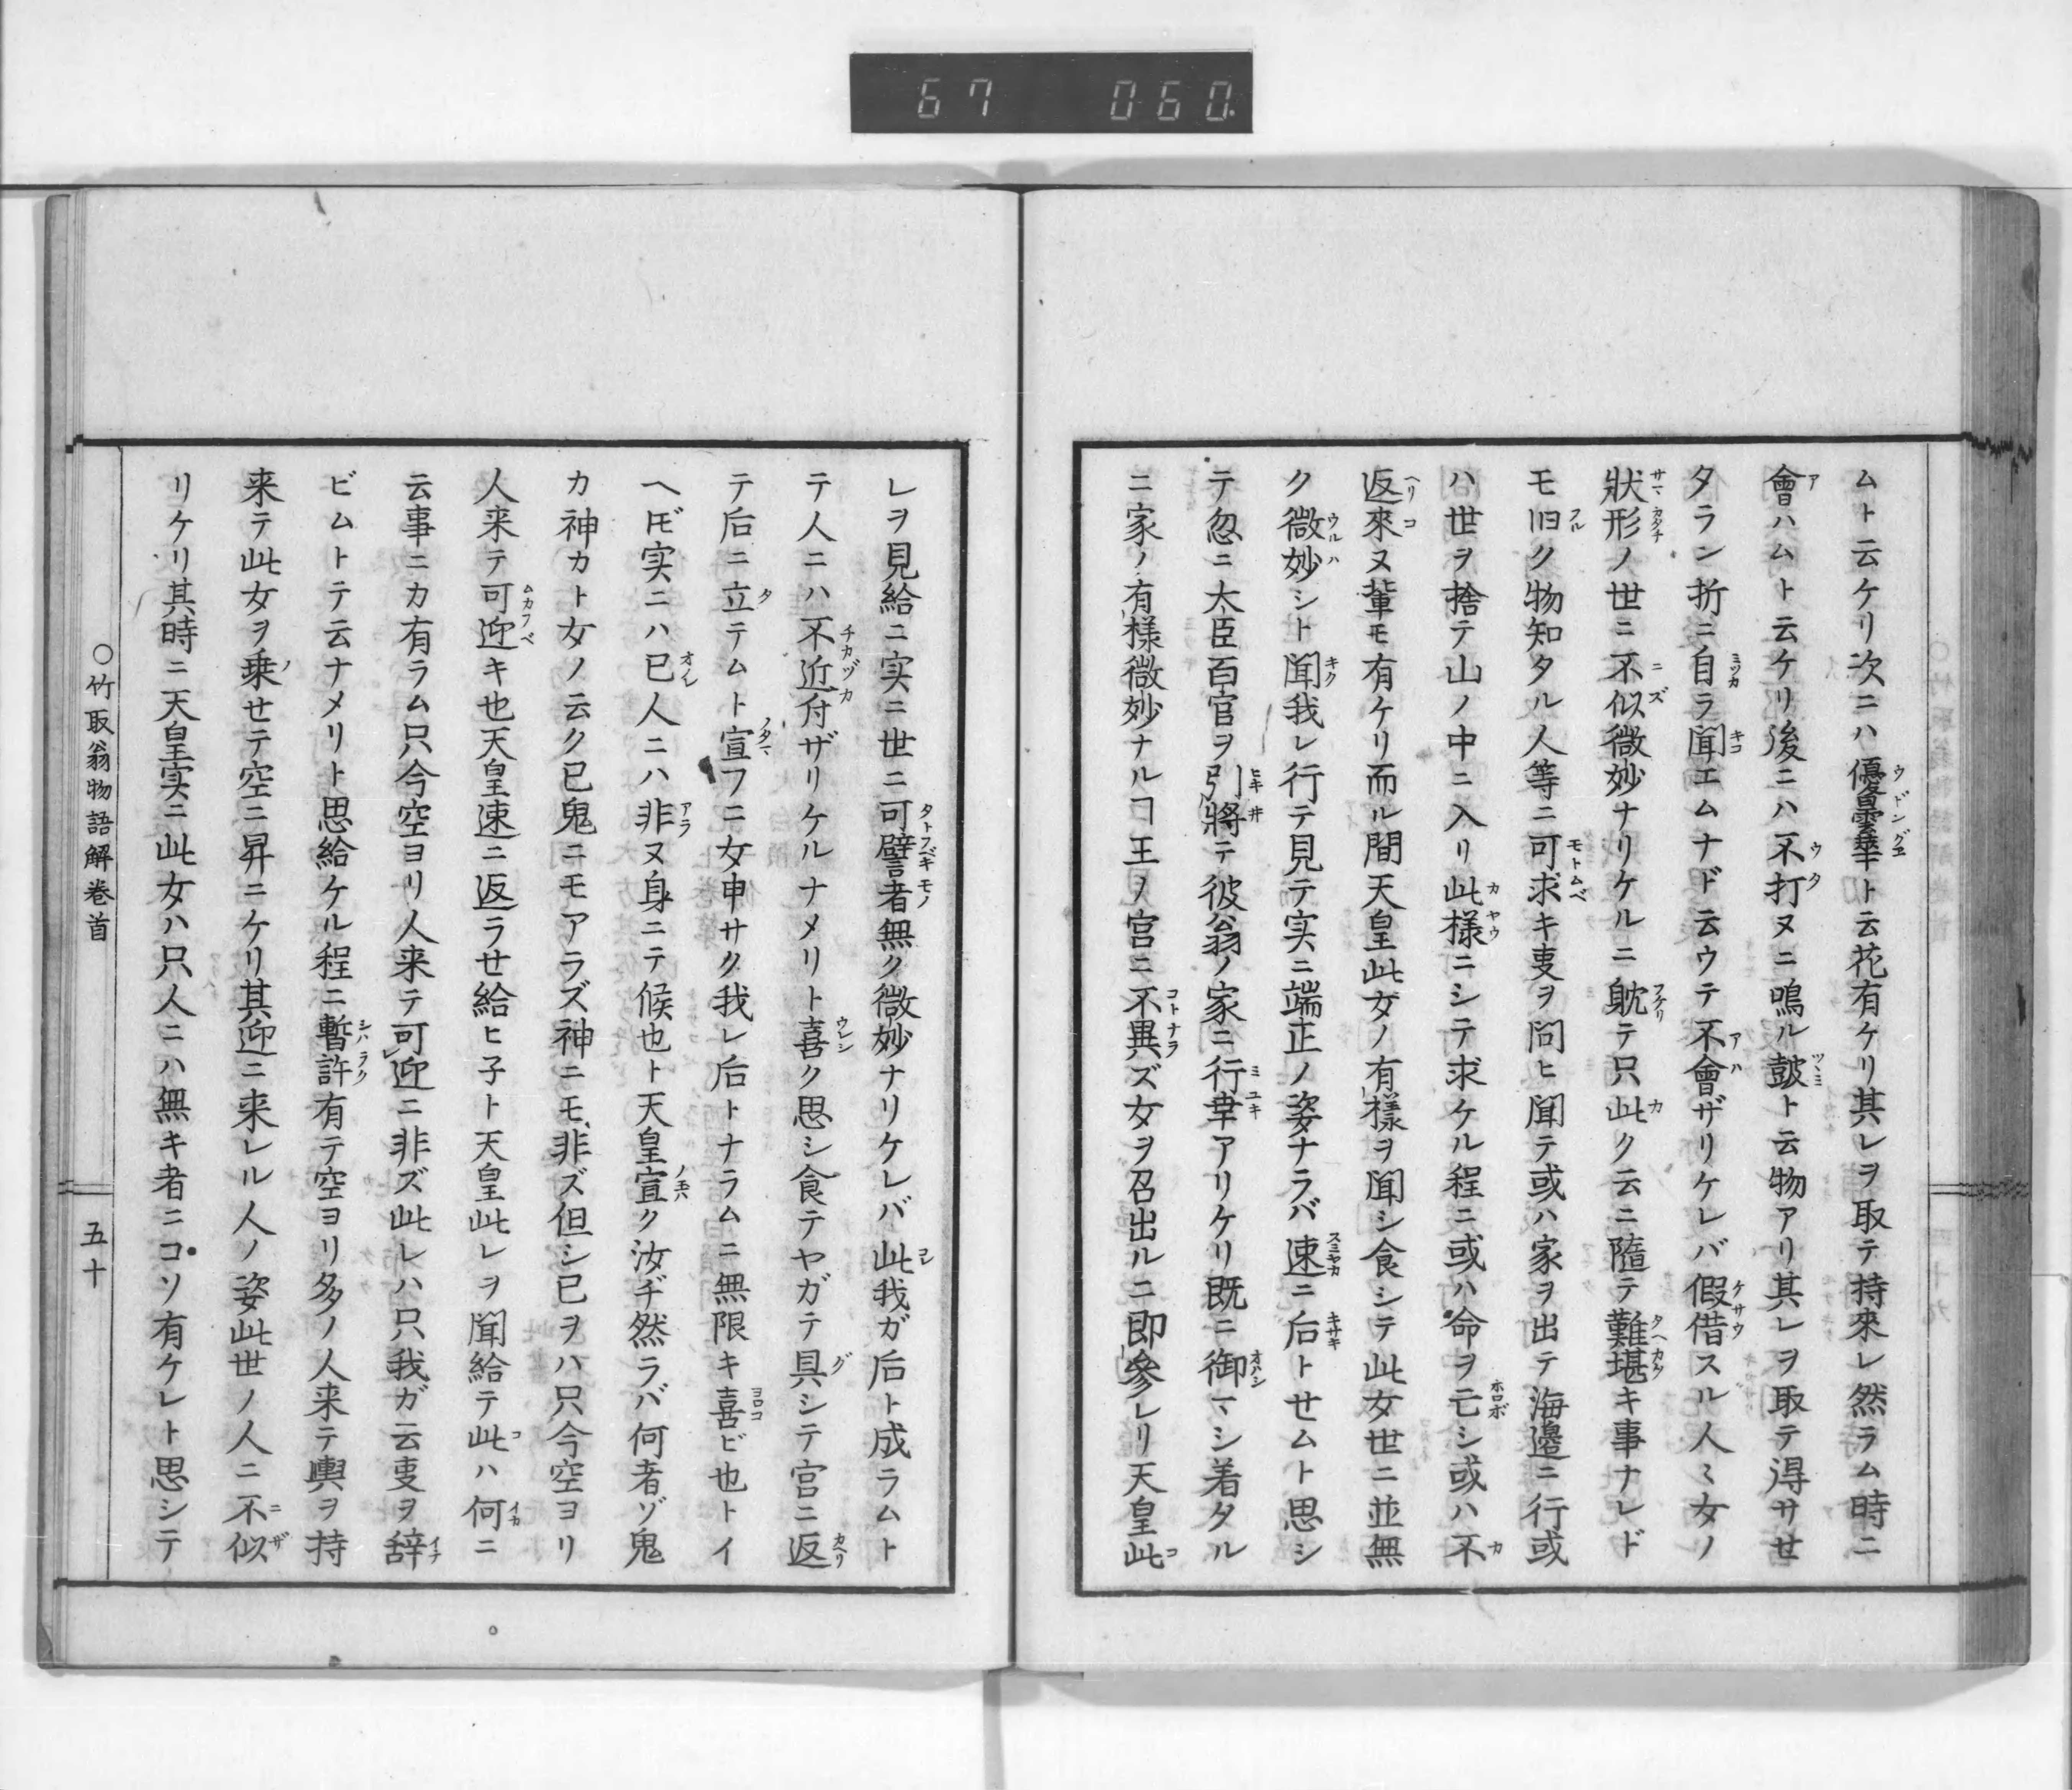 67 060.
ムト云ケリ次ニハ優曇華ト云花有ケリ其レヲ取テ持來レ然ラム時ニ
會ハムト云ケリ後ニハ不打ヌニ鳴ル皷ト云物アリ其レヲ取テ得サセ
タラン折ニ自ラ聞エムナド云ウテ不會ザリケレバ假借スル人〻女ノ
狀形ノ世ニ不似微妙ナリケルニ躭テ只此ク云ニ隨テ難堪キ事ナレド
モ旧ク物知タル人等ニ可求キ叓ヲ問ヒ聞テ或ハ家ヲ出テ海邊ニ行或
ハ世ヲ捨テ山ノ中ニ入リ此様ニシテ求ケル程ニ或ハ命ヲ亡シ或ハ不
返來ヌ輩モ有ケリ而ル間天皇此女ノ有様ヲ聞シ食シテ此女世ニ並無
ク微妙シト聞我レ行テ見テ実ニ端正ノ姿ナラバ速ニ后トせムト思シ
テ忽ニ大臣百官ヲ引將テ彼翁ノ家ニ行幸アリケリ既ニ御マシ着タル
ニ家ノ有様微妙ナルヿ王ノ宮ニ不異ズ女ヲ召出ルニ即參レリ天皇此
レヲ見給ニ実ニ世ニ可譬者無ク微妙ナリケレバ此我ガ后ト成ラムト
テ人ニハ不近付ザリケルナメリト喜ク思シ食テヤガテ具シテ宮ニ返
テ后ニ立テムト宣フニ女申サク我レ后トナラムニ無限キ喜ビ也トイ
ヘドモ実ニハ已人ニハ非ヌ身ニテ候也ト天皇宣ク汝ヂ然ラバ何者ゾ鬼
カ神カト女ノ云ク已鬼ニモアラズ神ニモ非ズ但シ已ヲハ只今空ヨリ
人来テ可迎キ也天皇速ニ返ラせ給ヒ子ト天皇此レヲ聞給テ此ハ何ニ
云事ニカ有ラム只今空ヨリ人来テ可迎ニ非ズ此レハ只我ガ云叓ヲ辞
ビムトテ云ナメリト思給ケル程ニ暫許有テ空ヨリ多ノ人来テ輿ヲ持
来テ此女ヲ乗せテ空ニ昇ニケリ其迎ニ来レル人ノ姿此世ノ人ニ不似
リケリ其時ニ天皇実ニ此女ハ只人ニハ無キ者ニコソ有ケレト思シテ
○竹取翁物語解巻首
五十